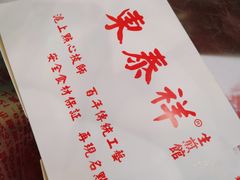 東泰祥®
生煎館
滬上點心技師 百年傳統工藝
安全食材保証 再現名點